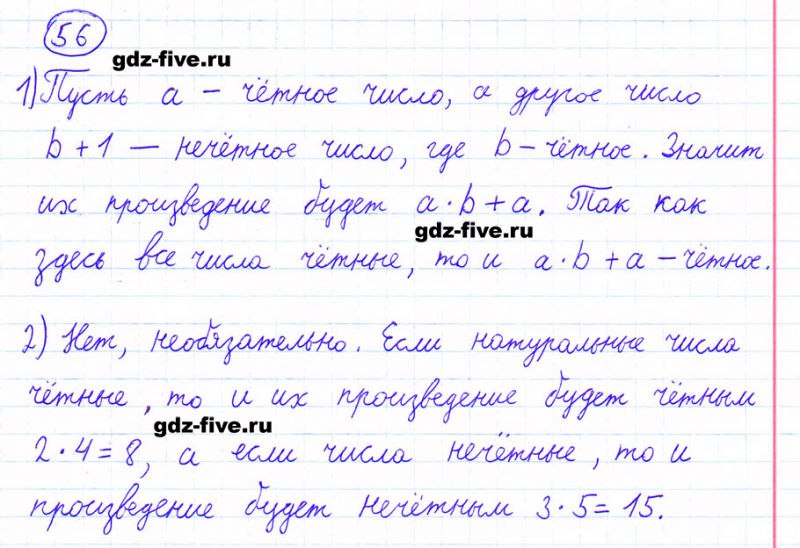 56
gdz-five.ru
1) Пусть a – чётное число, а другое число
b + 1 — нечётное число, где b – чётное. Значит
их произведение будет a · b + a. Так как
gdz-five.ru
здесь все числа чётные, то и a · b + a – чётное.
2) Нет, необязательно. Если натуральные числа
чётные, то и их произведение будет чётным
gdz-five.ru
2 · 4 = 8, а если числа нечётные, то и
произведение будет нечётным 3 · 5 = 15.